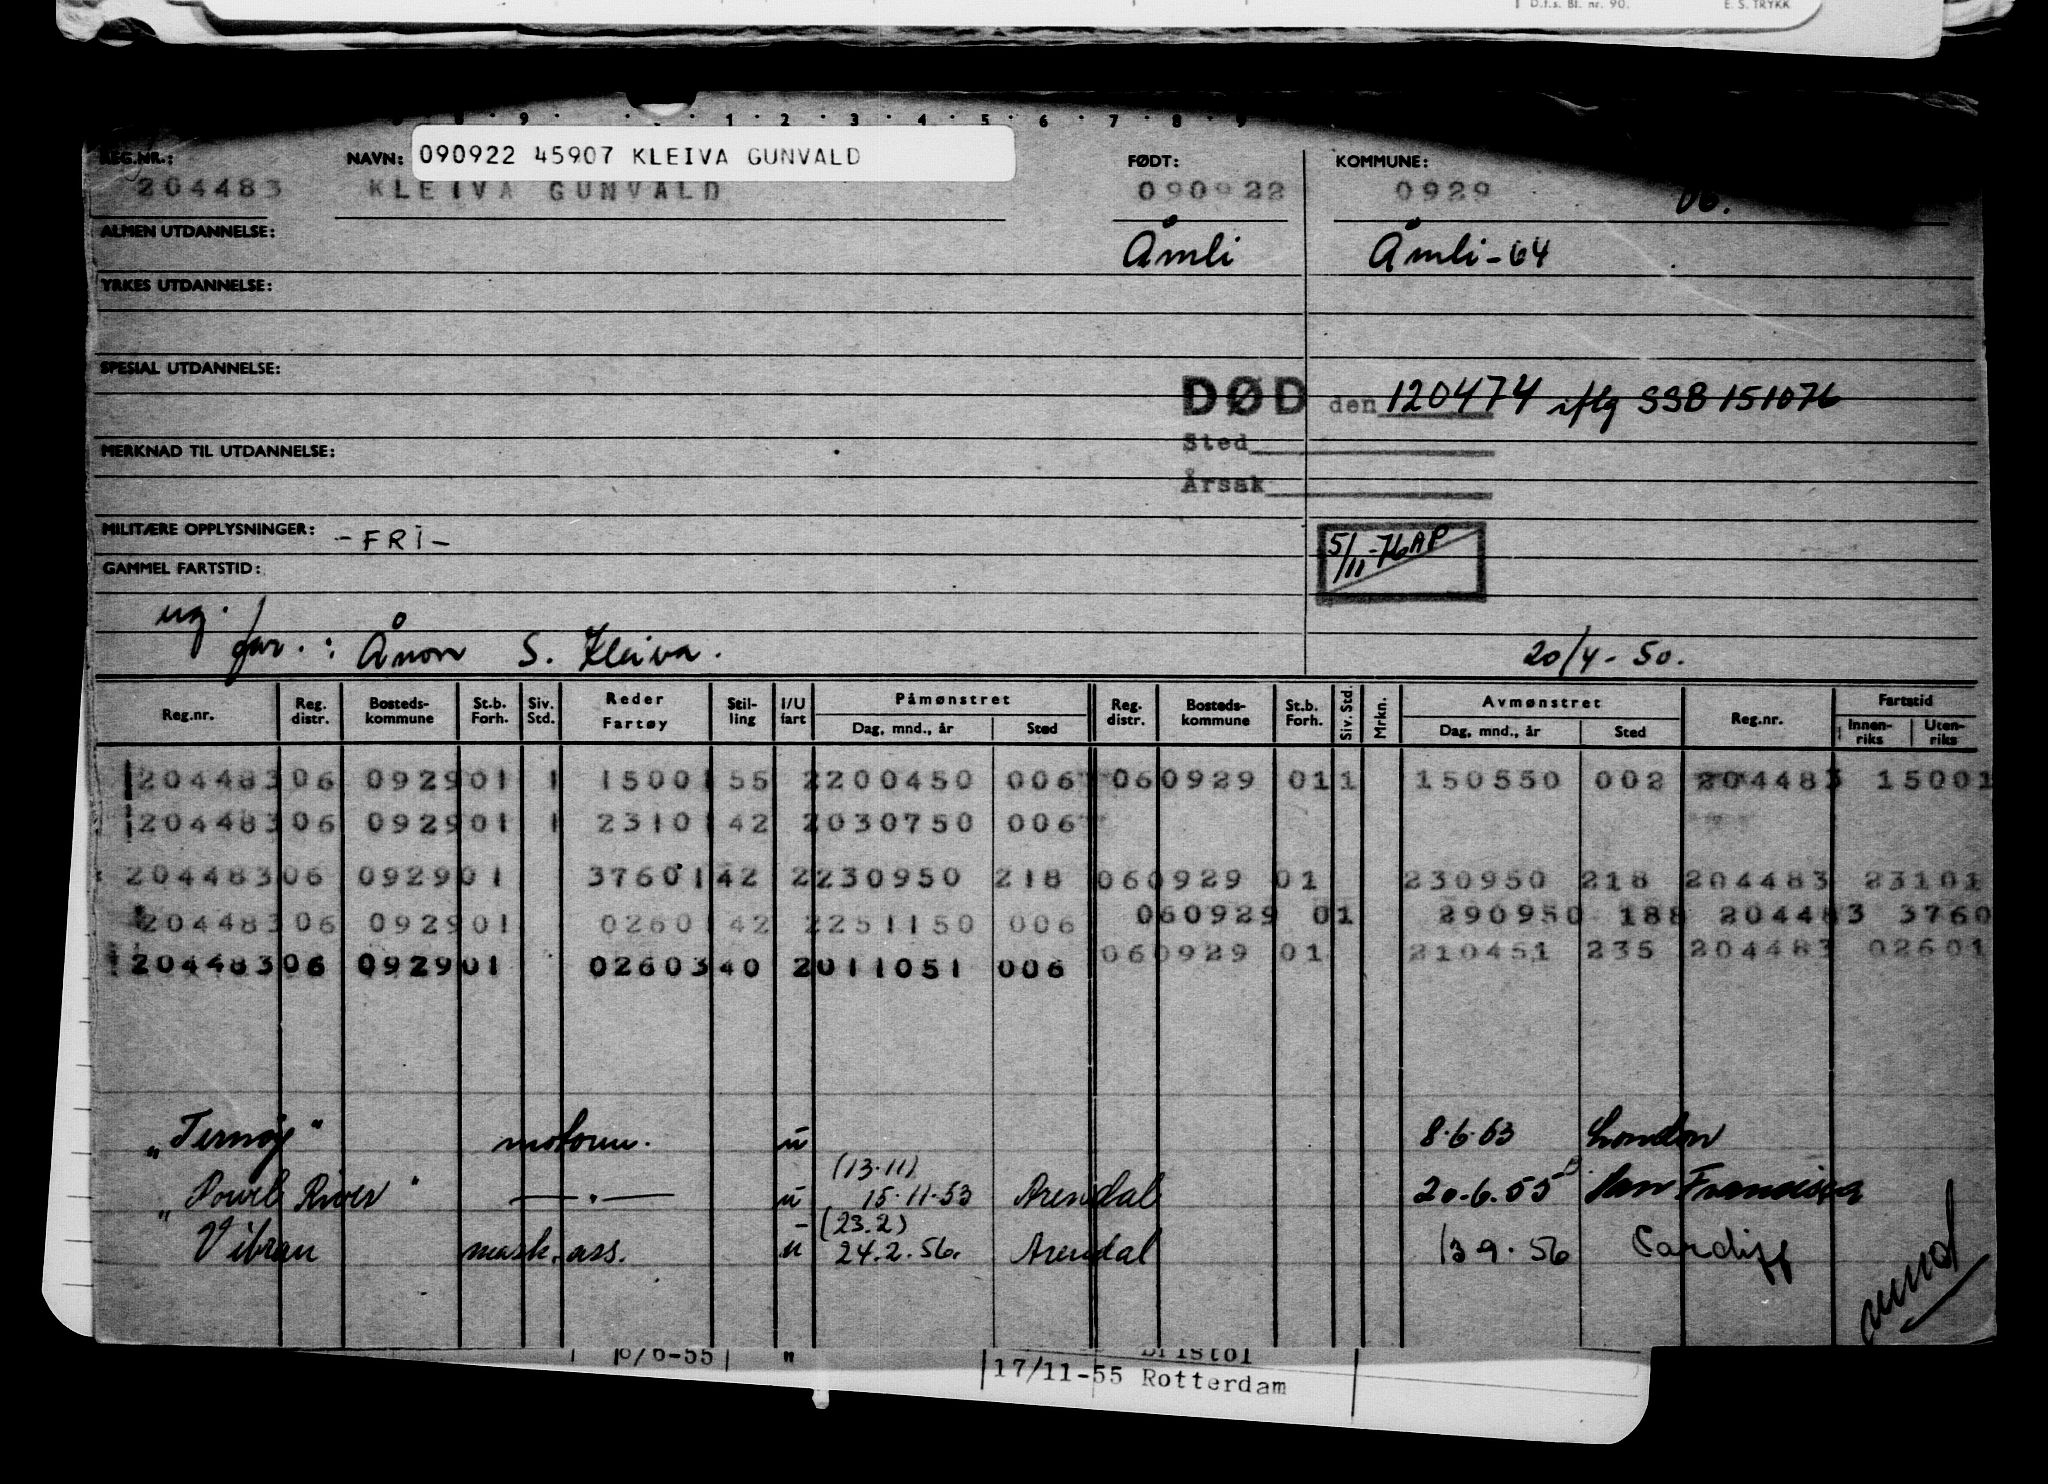 D.f.s. Bl. nr. 90. E. S. TRYKK
9 1 2 3 4 5 6 7 8 9
REG.NR.: NAVN: 090922 45907 KLEIVA GUNVALD FØDT: KOMMUNE:
204483 KLEIVA GUNVALD 090922 0929 06.
ALMEN UTDANNELSE: Åmli Åmli-64
YRKES UTDANNELSE:
SPESIAL UTDANNELSE:
DØD den 120474 iflg SSB 151076
MERKNAD TIL UTDANNELSE: Sted
Årsak
MILITÆRE OPPLYSNINGER: -FRI- 5/11-76 AP
GAMMEL FARTSTID:
ug.
far.: Ånon S. Kleiva. 20/4-50.
Reg.nr. Reg. distr. Bosteds-kommune St.b. Forh. Siv. Std. Reder Fartøy Stil-ling I/U fart Påmønstret Dag, mnd., år Sted Reg. distr. Bosteds-kommune St.b. Forh. Siv. Std. Mrkn. Avmønstret Dag, mnd., år Sted Reg.nr. Fartstid Innen-riks Uten-riks
204483 06 0929 01 1 15001 55 2 200450 006 06 0929 01 1 150550 002 204483 15001
204483 06 0929 01 1 23101 42 2 030750 006
204483 06 0929 01 37601 42 2 230950 218 06 0929 01 230950 218 204483 23101
204483 06 0929 01 02601 42 2 251150 006 06 0929 01 290950 188 204483 3760
204483 06 0929 01 02603 40 2 011051 006 06 0929 01 210451 235 204483 02601
"Ternøy" motorm. u 8.6.53 London
(13.11)
"Powell River" —"— u 15.11.53 Arendal 20.6.55 San Francisco
(23.2)
Vibran mask.ass. u 24.2.56. Arendal 13 9.56 Cardiff
6/6-55 " Bristol
17/11-55 Rotterdam